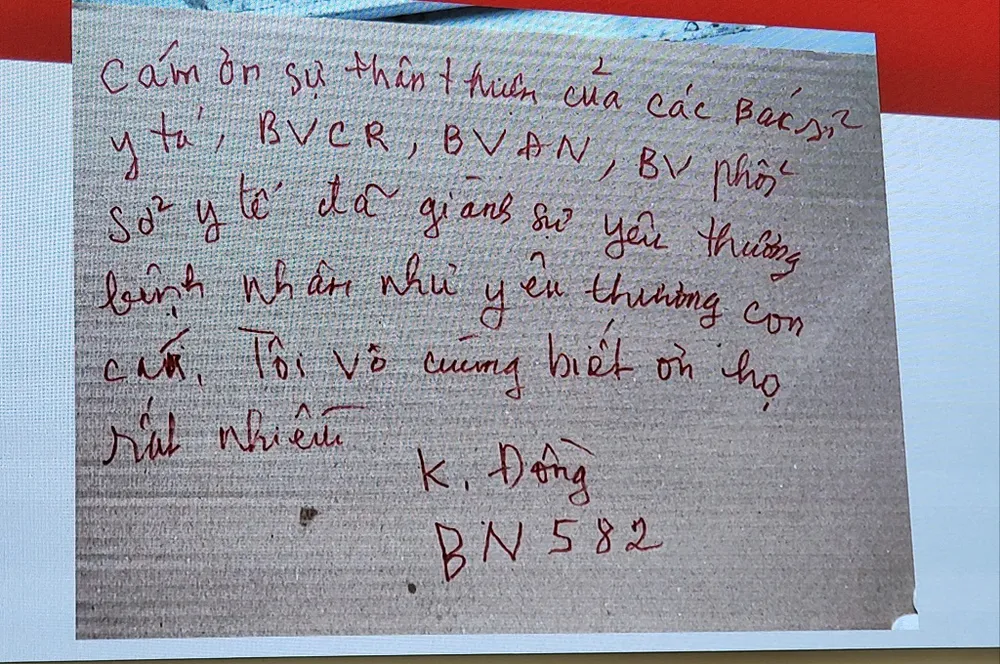 Cám ơn sự thân thiện của các Bác sĩ
y tá, BVCR, BVAN, BV phổi
Sở y tế đã giành sự yêu thương
bệnh nhân như yêu thương con
cái. Tôi vô cùng biết ơn họ
rất nhiều
K. Đông
BN 582